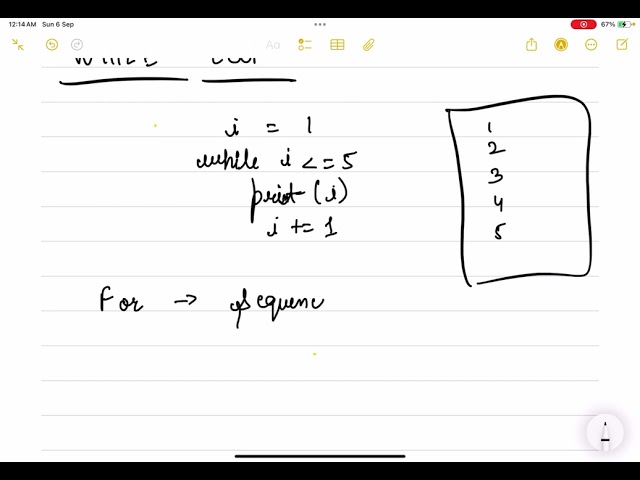 12:14 AM Sun 6 Sep
67%
Aa
i = 1
while i <= 5
print (i)
i += 1
1
2
3
4
5
For → Sequenc